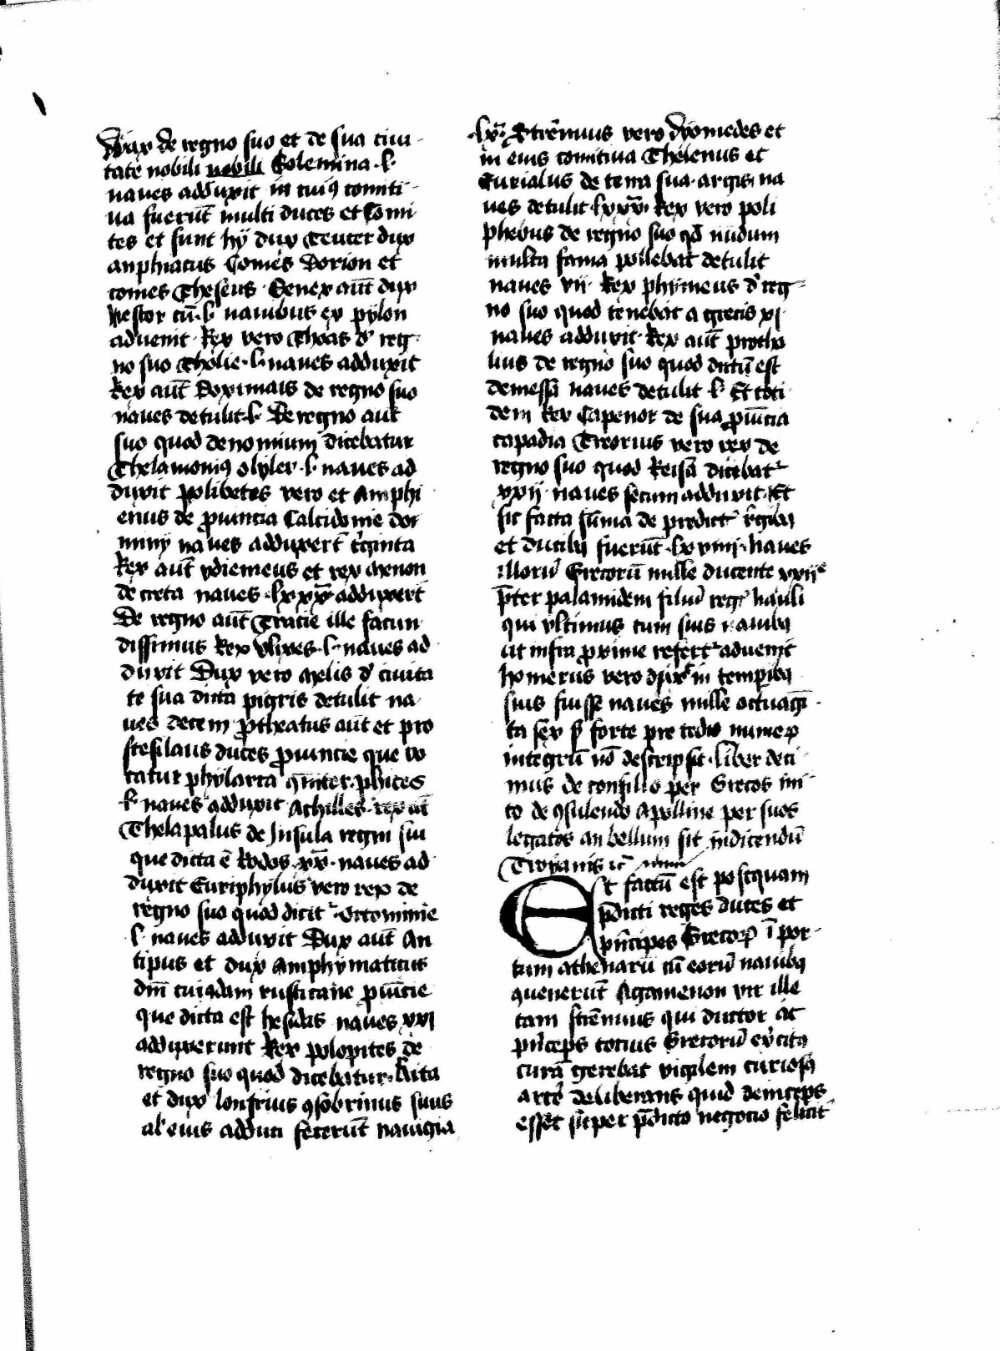 dux de regno suo et de sua ciui-
tate nobili nobili Solemina ·L·
naues adduxit in cuiꝰ comiti-
ua fuerūt multi duces et Comi-
tes et sunt hij dux Teucer dux
anphiacus Comes Dorion et
comes Theseus · Senex aūt dux
Nestor cū ·L· nauibus ex pylon
aduenit · Rex vero Thoas d' reg-
no suo Tholie ·L· naues adduxit
Rex aūt Doximais de regno suo
naues detulit ·L· De regno aūt
suo quod demonium dicebatur
Thelamoniꝰ olyler ·L· naues ad
duxit polibetes vero et Amphi
enus de ꝓuincia Calcidonie
naues adduxerūt t'ginta
Rex aūt ydiemeus et rex menon
de creta naues ·lxxx· adduxerūt
De regno aūt Tracie ille facun
dissimus Rex vlixes ·L· naues ad
duxit Dux vero melis d' ciuita
te sua dicta pigris detulit na
ues decem ꝓtheatus aūt et pro
thesilaus duces ꝓuincie que vo
catur phylarca
·L· naues adduxit Achilles · rex aūt
Thelapalus de Insula regni sui
que dicta ē Rodos ·xx· naues ad
duxit Euriphylus vero rex de
regno suo quod dicit᷑ Ortominie
·L· naues adduxit Dux aūt An
tipus et dux Amphymaticus
dn̄i cuiꝰdam rusticane ꝓuincie
que dicta est hesidis naues xxj
adduxerunt Rex polopites de
regno suo quod dicebatur · Rita
et dux lonfrius ꝯsobrinus suus
al' eius adduci fecerūt nauigia
·lx· Strēnuus vero dyomedes et
in eius comitiua Thelenus et
Eurialus de terra sua · argis na
ues detulit ·lxxx· Rex vero poli
phebus de regno suo qd̄ nudum
multa fama pollebat detulit
naues vij · Rex phymeus d' reg-
no suo quod tenebat a grecis xj
naues adduxit · Rex aūt protho
lius de regno suo quod dictū est
demessa naues detulit ·L· Et toti
dem Rex Capenor de sua ꝓuincia
capadia Treorius vero rex de
regno suo quod Reisa dicebat᷑
xxij naues secum adduxit · Et
sic facta sūma de predict᷑ regibꝫ
et ducibꝫ fuerūt ·lxviiij· naues
illorū Grecorū mille ducente xxije
p̄ter palamidem filiū reg᷑ nauli
qui vltimus cum suis nauibꝫ
ut infra proxime refert᷑ aduenit
homerus vero dixit in temporibꝫ
suis fuisse naues mille octuagī-
ta sex sꝫ forte pre tedio numerꝝ
integrū nō descripsit · liber deci
mus de consilio per Grecos ini
to de ꝯsulendo Apolline per suos
legatos an bellum sit indicendū
Troyanis
Et factū est postquam
p̄dicti reges duces et
prīcipes Grecorꝝ ī por-
tum athenarū cū eorū nauibꝫ
ꝯuenerūt Agamenon vir ille
tam strēnuus qui ductor ac
prīceps tocius Grecorū ex'citꝰ
curā gerebat vigilem curiosa
arte deliberans quid deinceps
esset sup̄ p̄dicto negocio felicit᷑